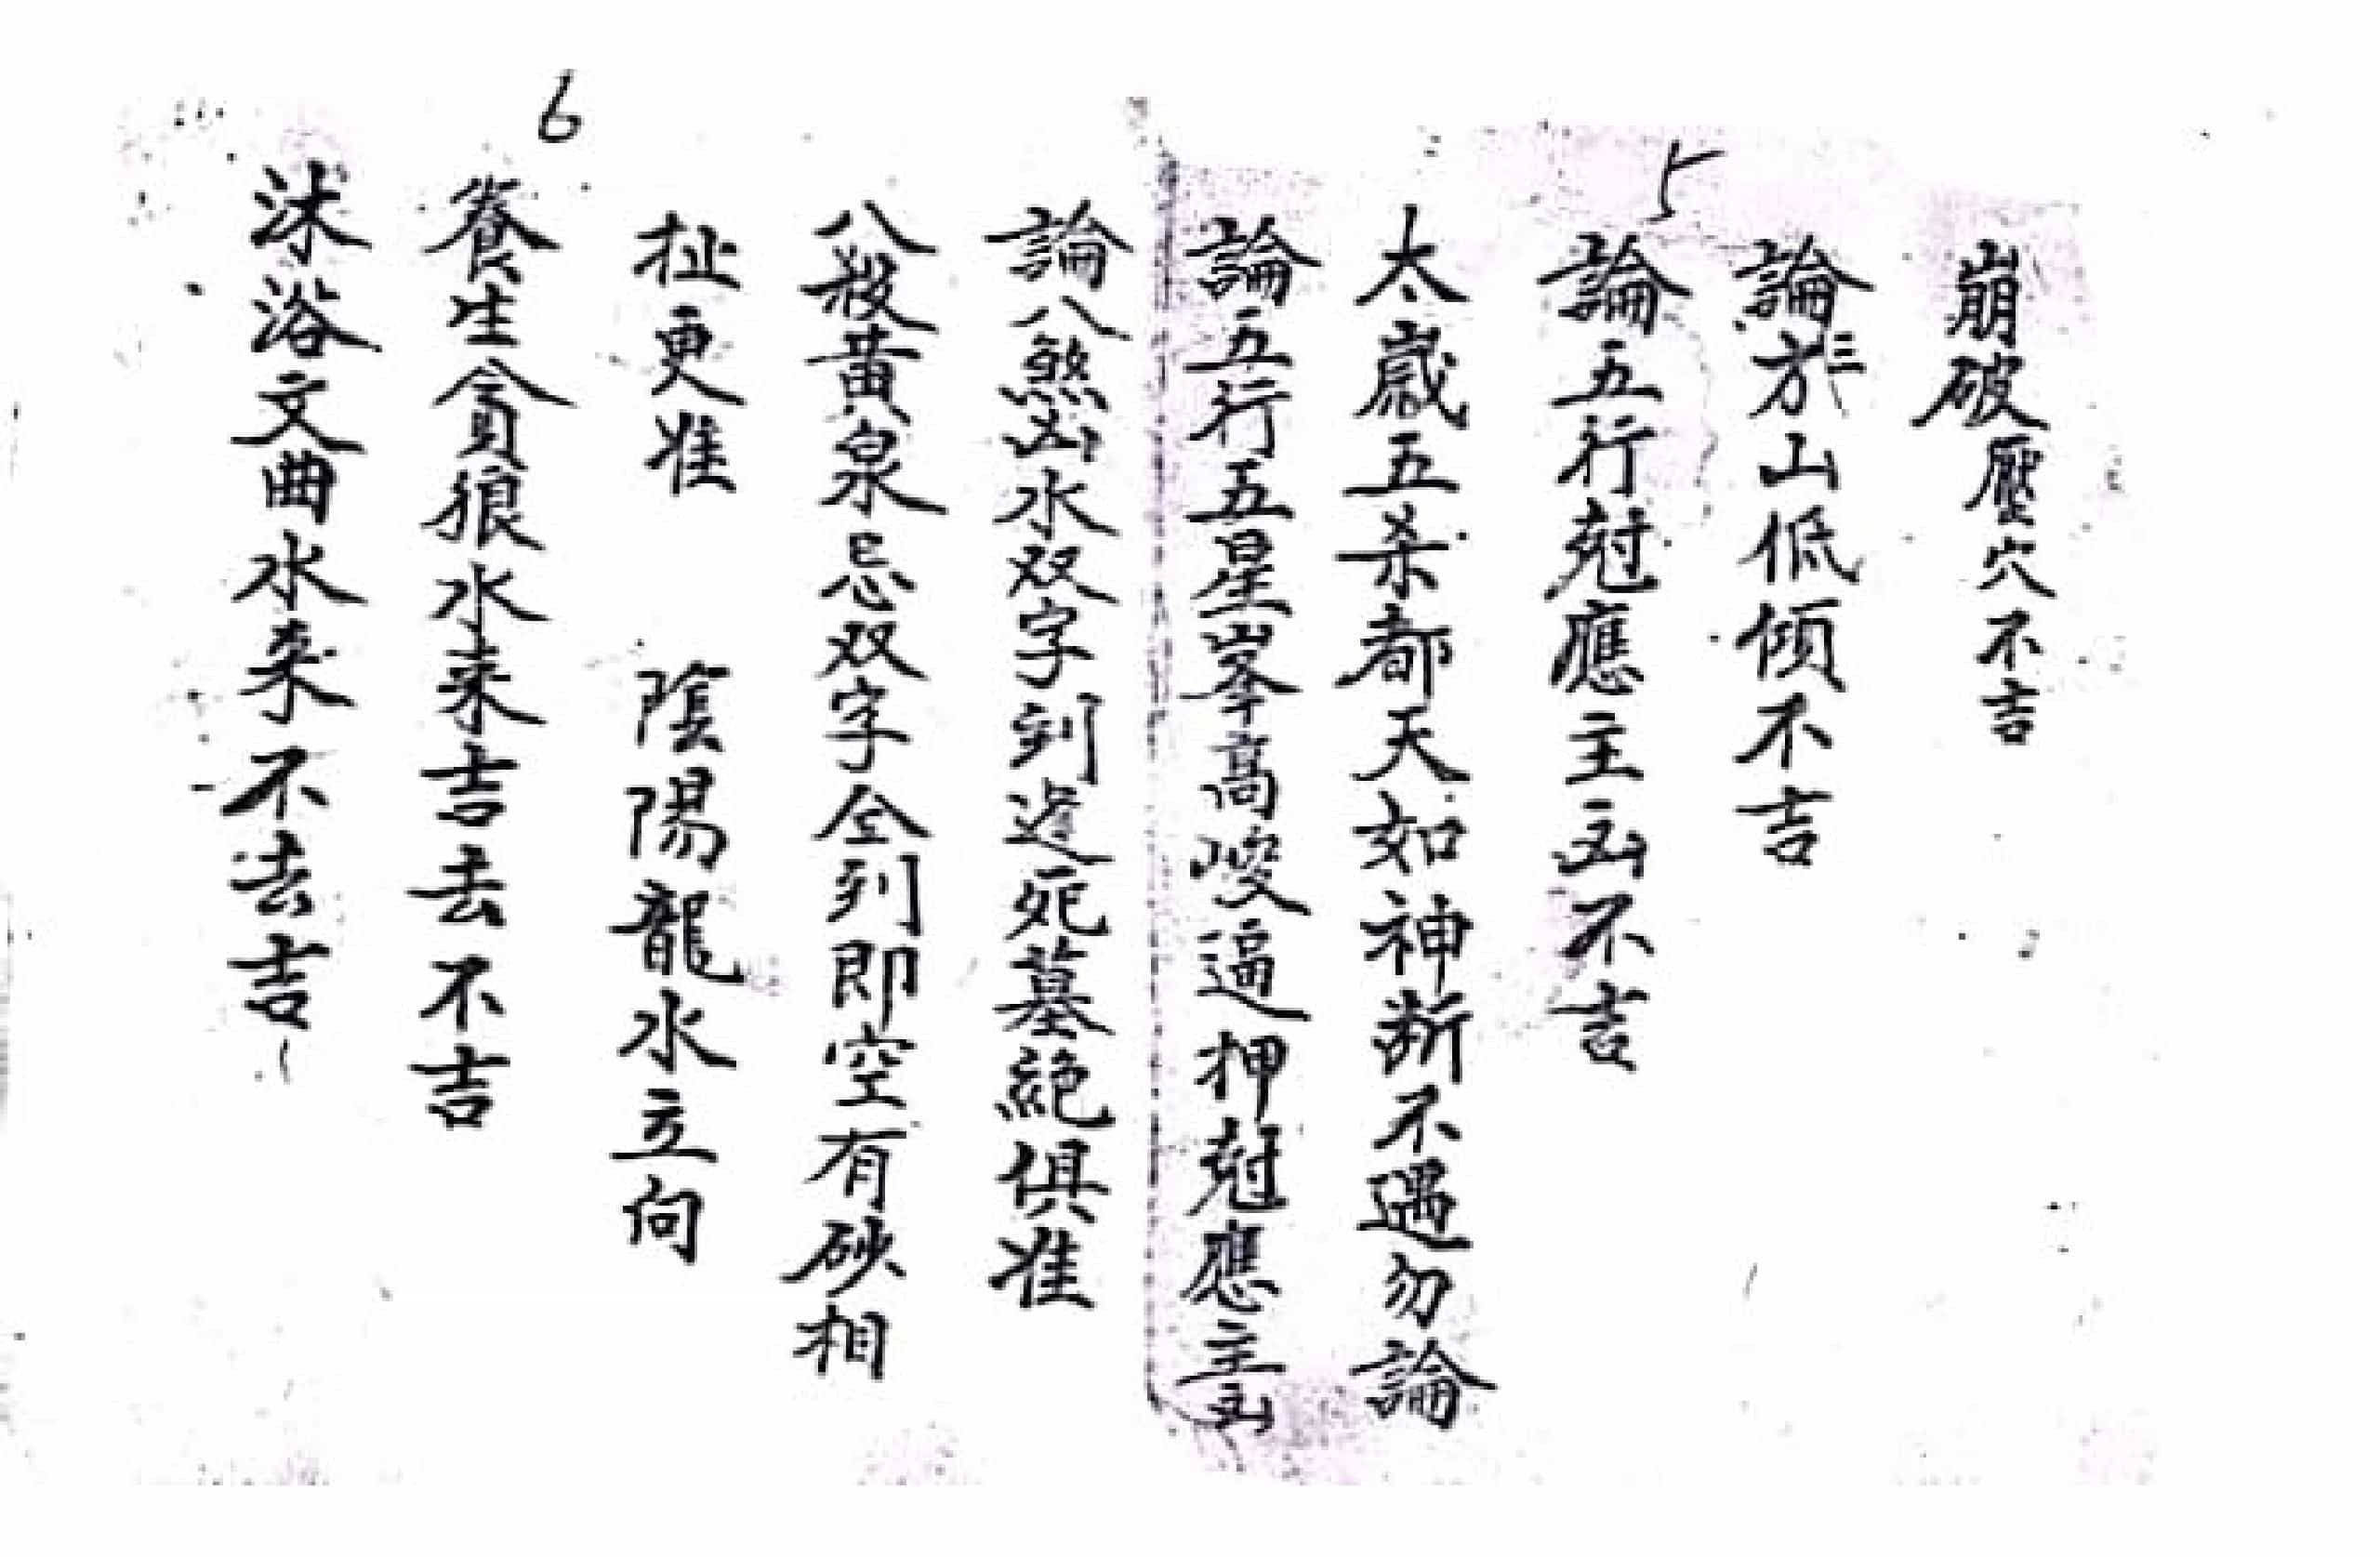 5
崩破壓穴不吉
論三方山低傾不吉
論五行尅應主凶不吉
太歲五杀都天如神断不遇勿論
論五行五星峯高峻逼押尅應主凶
論八煞凶水双字到逢死墓絕俱准
6
八殺黃泉忌双字仝到即空有砂相
扯更准 陰陽龍水立向
養生貪狼水来吉去不吉
沐浴文曲水来不吉去吉